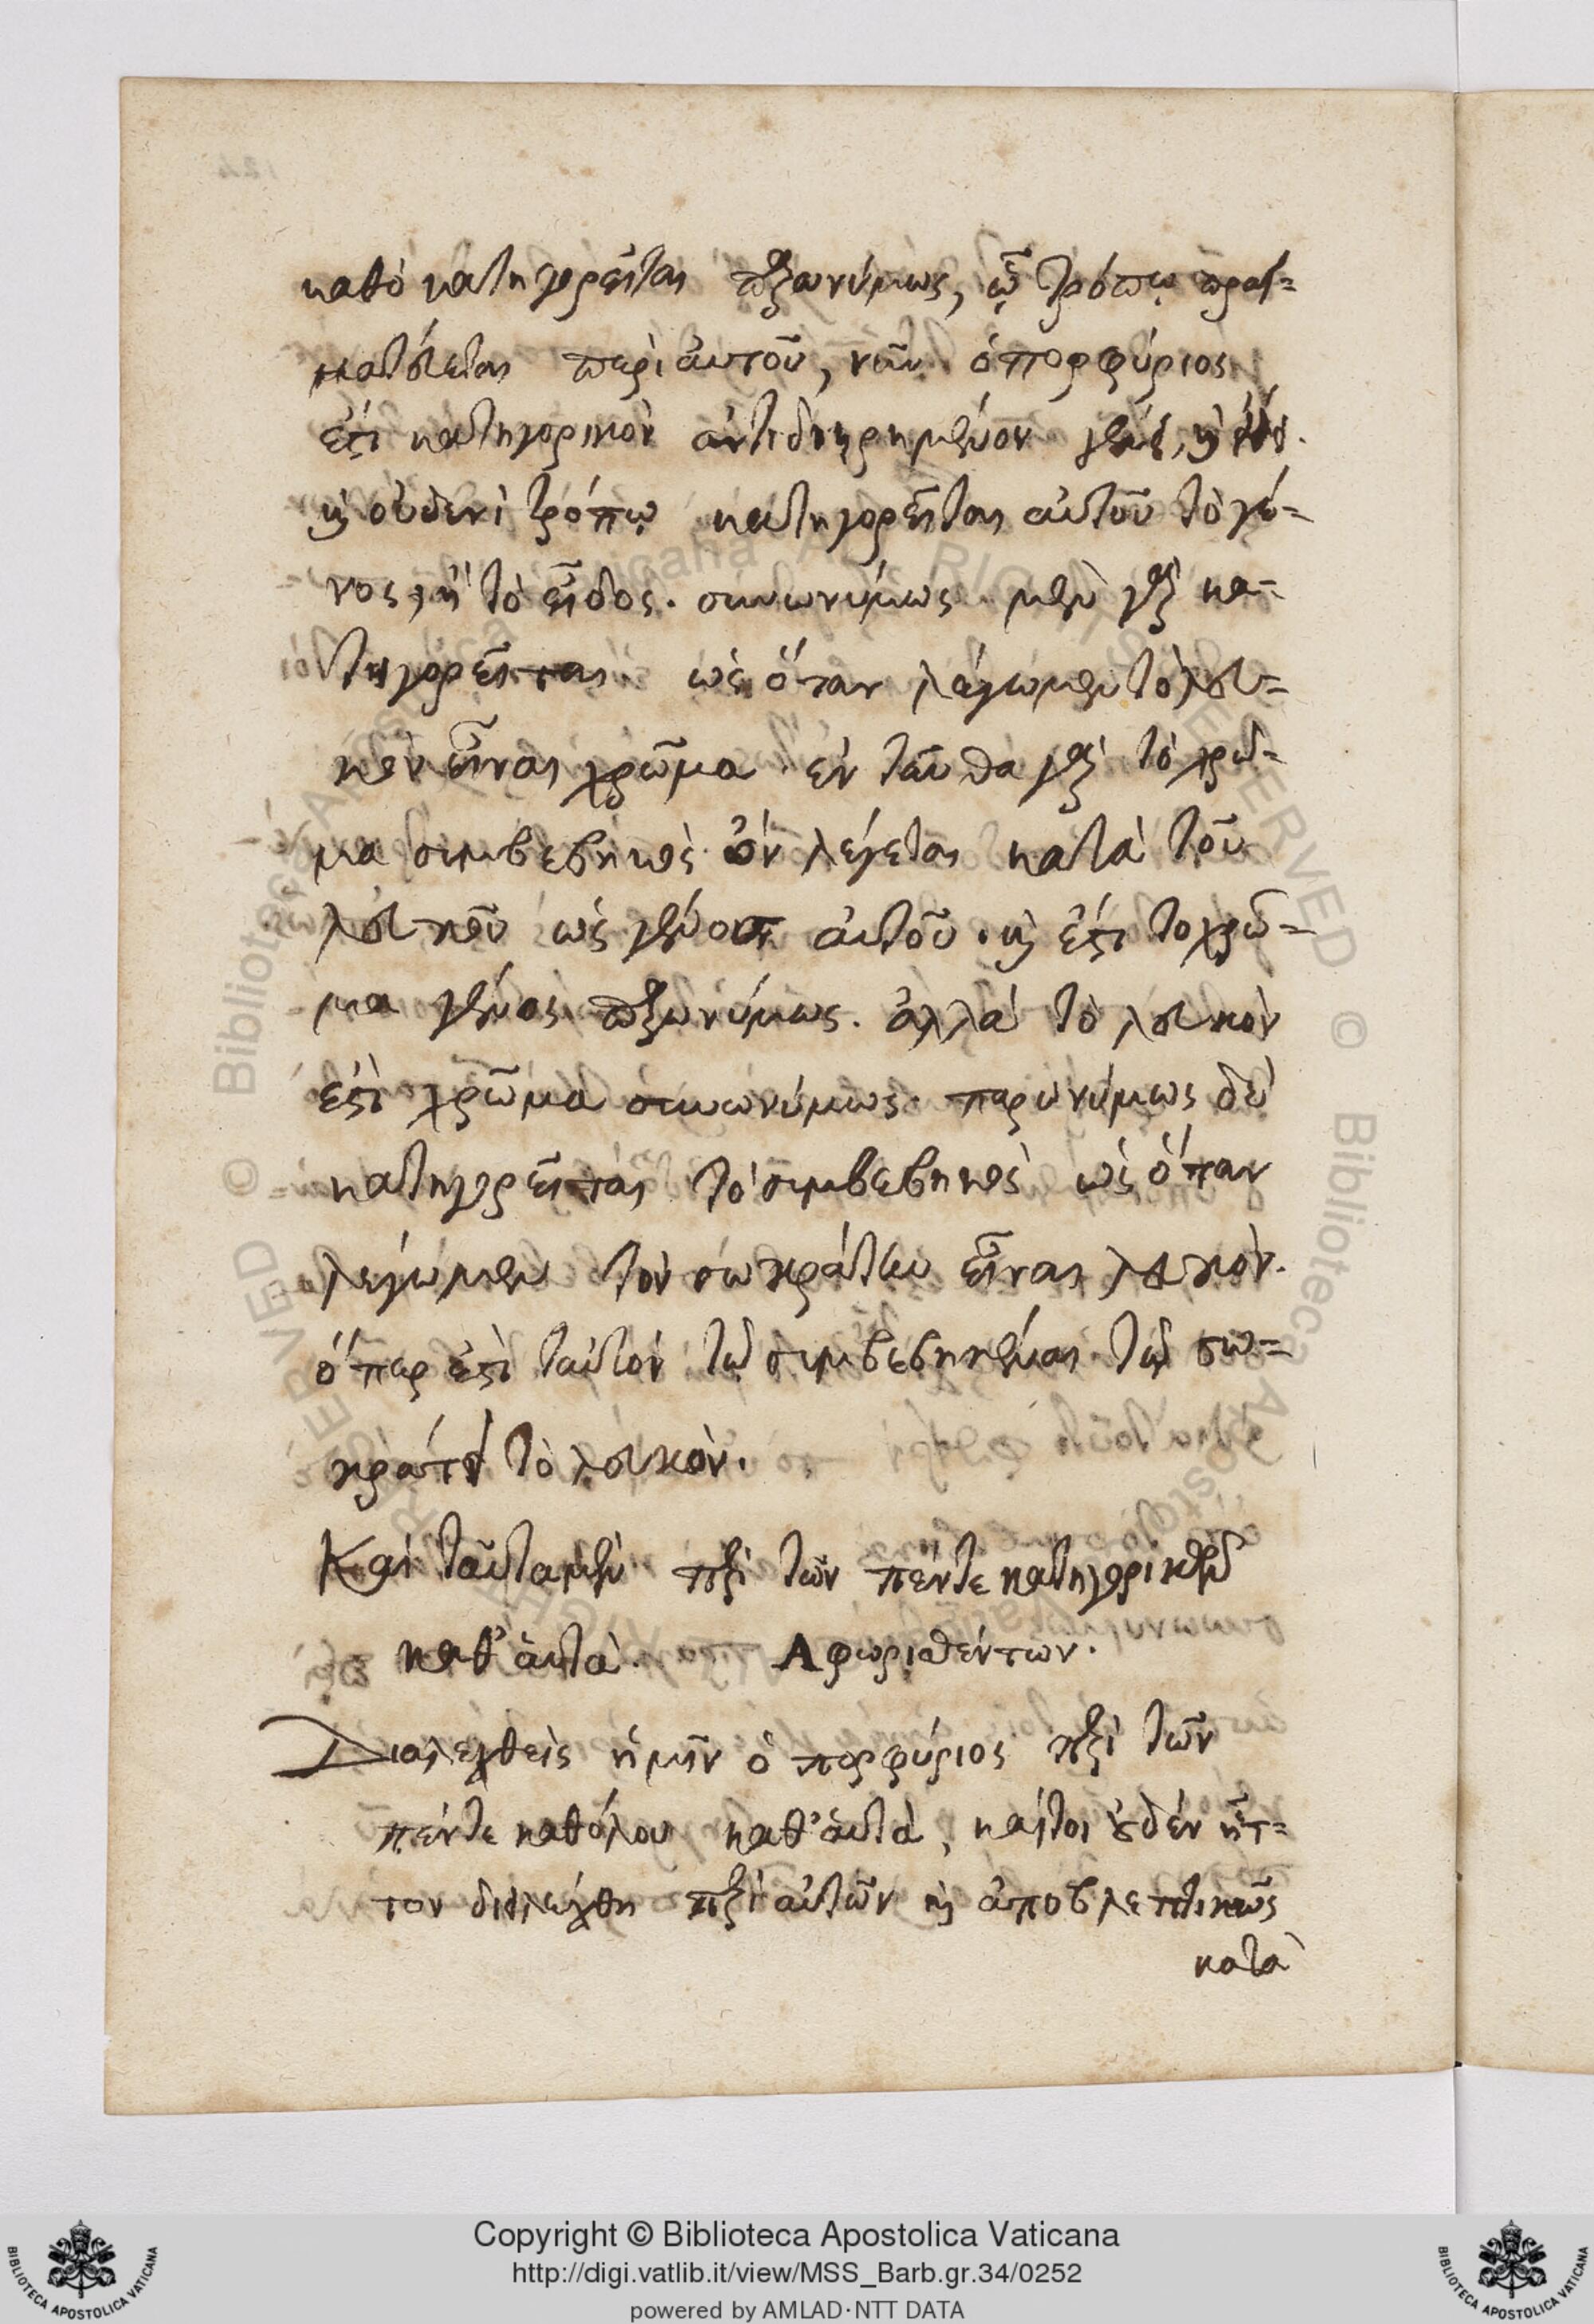 καθὸ κατηγορεῖται παρωνύμως, ᾧ τρόπῳ πραγ-
ματεύεται περὶ αὐτοῦ, νῦν ὁ πορφύριος
ἐστὶ κατηγορικὸν ἀντιδιῃρημένον γένει, καὶ εἴδει.
καὶ οὐδενὶ τρόπῳ κατηγορεῖται αὐτοῦ τὸ γέ-
νος, ἢ τὸ εἶδος. συνωνύμως μὲν γὰρ κα-
τηγορεῖται ὡς ὅταν λέγωμεν τὸ λευ-
κὸν εἶναι χρῶμα. ἐν ταῦθα γὰρ τὸ χρῶ-
μα συμβεβηκὸς ὂν λέγεται κατὰ τοῦ
λευκοῦ ὡς γένος αὐτοῦ. καὶ ἐστὶ το χρῶ-
μα γένος παρωνύμως. ἀλλὰ τὸ λευκὸν
ἐστὶ χρῶμα συνωνύμως. παρωνύμως δὲ
κατηγορεῖται τὸ συμβεβηκὸς ὡς ὅταν
λέγωμεν τὸν σωκράτην εἶναι λευκόν.
ὅπερ ἐστὶ ταὐτὸν τῷ συμβεβηκέναι τῷ σω-
κράτει τὸ λευκὸν.
Καὶ ταῦτα μὲν περὶ τῶν πέντε κατηγορικῶν
καθ' αὑτὰ. Αφωρισθέντων.
Διαλεχθεὶς ἡμῖν ὁ πορφύριος περὶ τῶν
πέντε καθόλου καθ' αὑτὰ, καίτοι οὐδὲν ἧτ-
τον διελέχθη περὶ αὐτῶν καὶ ἀποβλεπτικῶς
κατὰ
Copyright © Biblioteca Apostolica Vaticana
http://digi.vatlib.it/view/MSS_Barb.gr.34/0252
powered by AMLAD·NTT DATA